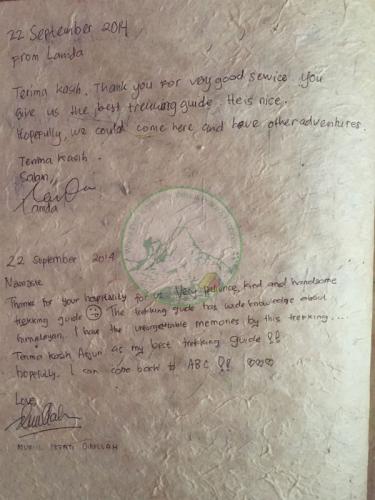 22 September 2014
From Lamda
Terima kasih. Thank you for very good service. You
give us the best trekking guide. He is nice.
Hopefully, we could come here and have other adventures.
Terima kasih.
Salam,
Lamda
22 September 2014
Namaste
Thanks for your hospitality for us. Very patience, kind and handsome
trekking guide The trekking guide has wide knowledge about
himalayan. I have the unforgettable memories by this trekking...
Terima kasih Arjun as my best trekking guide !!
hopefully, I can come back to ABC !!
Love,